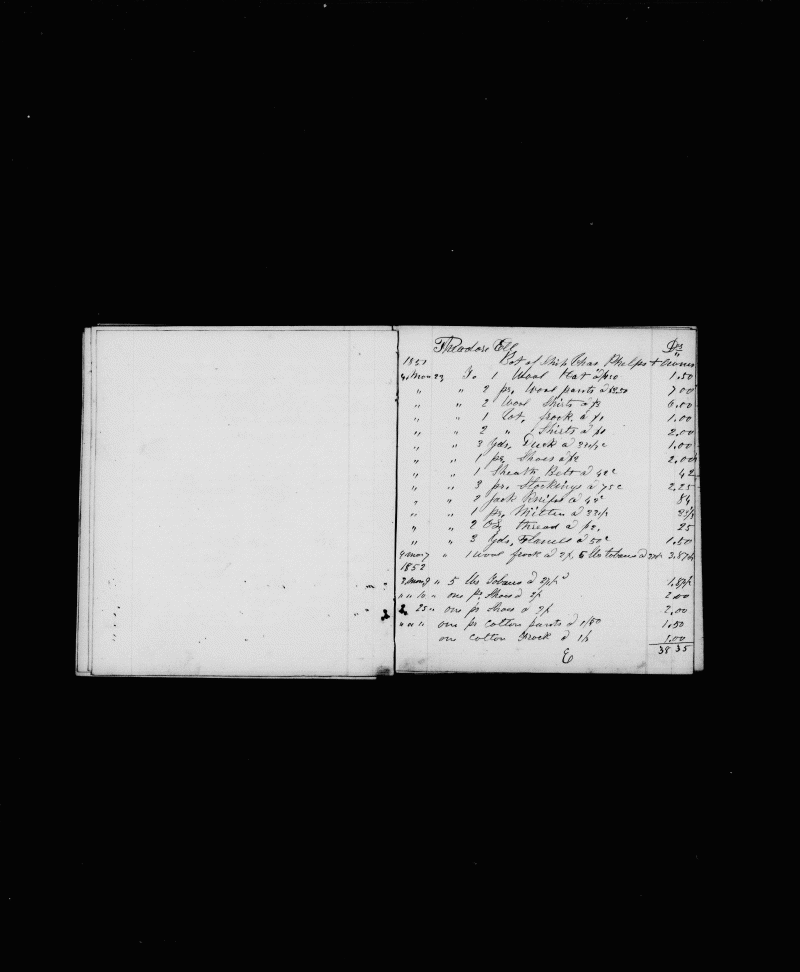 Theodore Dr
1851 Bot of Ship Chas. Phelps & Owners
" To 1 Wool Hat a 1.50
" " 2 pr. Wool pants a 7 00
" " 2 Wool Shirts a 6.00
" " 1 Cot. frock a 1.00
" " 2 " Shirts a 2.00
" " 3 Yds. Duck a 1.00
" " 1 pr. Shoes a 2.00
" " 1 Sheath Belt a 42c 42
" " 3 pr. Stockings a 75c 2.25
" " 2 Jack Knifes a 42c 84
" " 1 pr. Mittens a
" " 2 thread a 25
" " 3 Yds. Flannel a 50c 1.50
" 1 wool frock a 5 lbs tobacco a
1852
" 5 lbs Tobacco a
" " 10 " one pr Shoes a 2.00
25 " one pr Shoes a 2.00
" " " one pr cotton pants a 1.50
one cotton Frock a 1.00
38 35